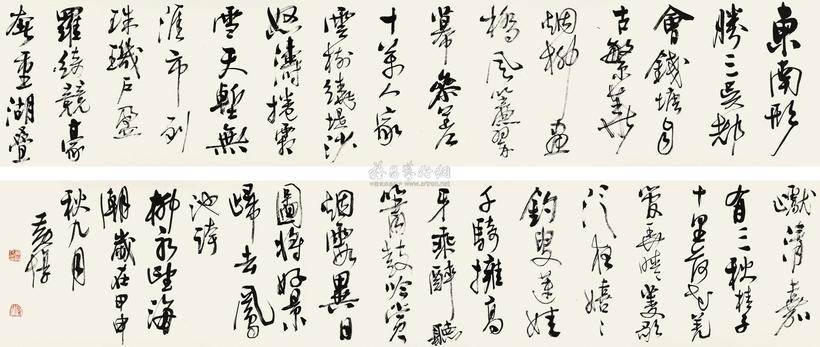 東南形
勝三吳都
會錢塘自
古繁華
烟柳畫
橋風簾翠
幕參差
十萬人家
雲樹繞堤沙
怒濤捲霜
雪天塹無
涯市列
珠璣戶盈
羅綺競豪
奢重湖疊
巘清嘉
有三秋桂子
十里荷花羌
管弄晴菱歌
泛夜嬉〻
釣叟蓮娃
千騎擁高
牙乘醉聽
簫鼓吟賞
烟霞異日
圖將好景
歸去鳳
池誇
柳永望海
潮歲在甲申
秋九月